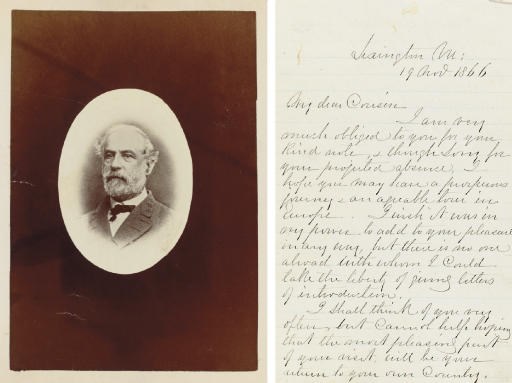 Lexington Va:
19 Nov 1866
My dear Cousin
I am very
much obliged to you for your
kind note, & though sorry for
your projected absence, I
hope you may have a prosperous
journey & an agreeable tour in
Europe. I wish it was in
my power to add to your pleasure
in any way, but there is no one
abroad with whom I could
take the liberty of giving letters
of introduction.
I shall think of you very
often, but cannot help hoping
that the most pleasing part
of your visit, will be your
return to your own Country.